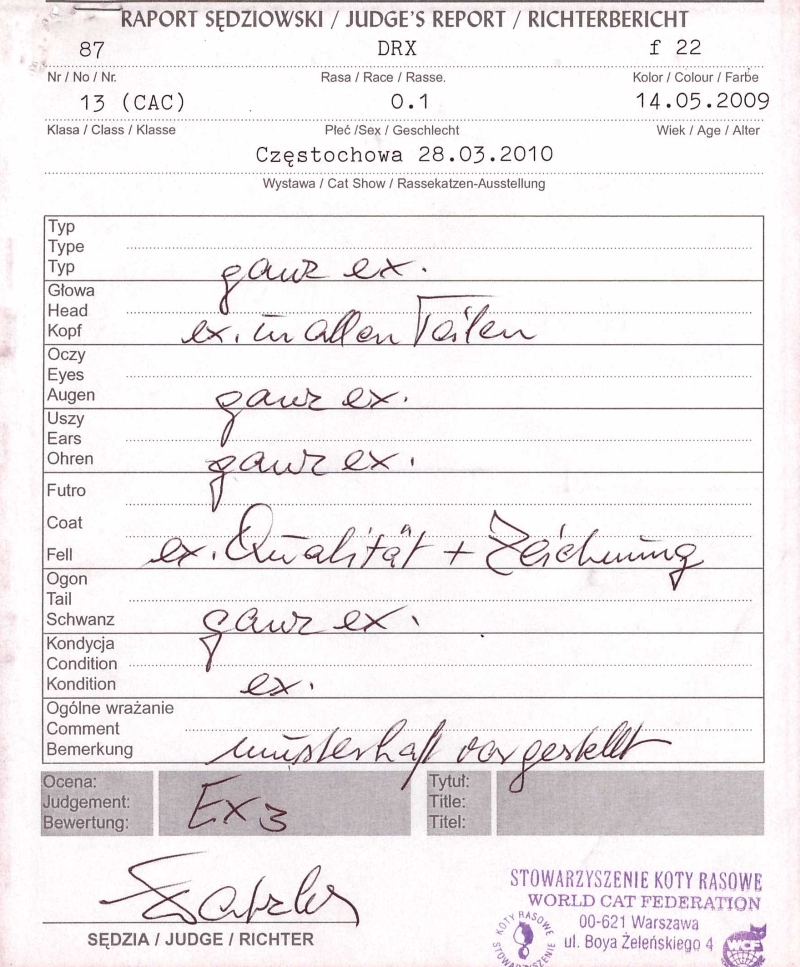 RAPORT SĘDZIOWSKI / JUDGE'S REPORT / RICHTERBERICHT
87 DRX f 22
Nr / No / Nr. Rasa / Race / Rasse. Kolor / Colour / Farbe
13 (CAC) 0.1 14.05.2009
Klasa / Class / Klasse Płeć /Sex / Geschlecht Wiek / Age / Alter
Częstochowa 28.03.2010
Wystawa / Cat Show / Rassekatzen-Ausstellung
Typ
Type
Typ ganz ex.
Głowa
Head
Kopf ex. in allen Teilen
Oczy
Eyes
Augen ganz ex.
Uszy
Ears
Ohren ganz ex.
Futro
Coat
Fell ex. Qualität + Zeichnung
Ogon
Tail
Schwanz ganz ex.
Kondycja
Condition
Kondition ex.
Ogólne wrażanie
Comment
Bemerkung musterhaft vorgestellt
Ocena: Tytuł:
Judgement: Ex 3 Title:
Bewertung: Titel:
SĘDZIA / JUDGE / RICHTER
STOWARZYSZENIE KOTY RASOWE
WORLD CAT FEDERATION
00-621 Warszawa
ul. Boya Żeleńskiego 4
KOTY RASOWE
STOWARZYSZENIE
WCF